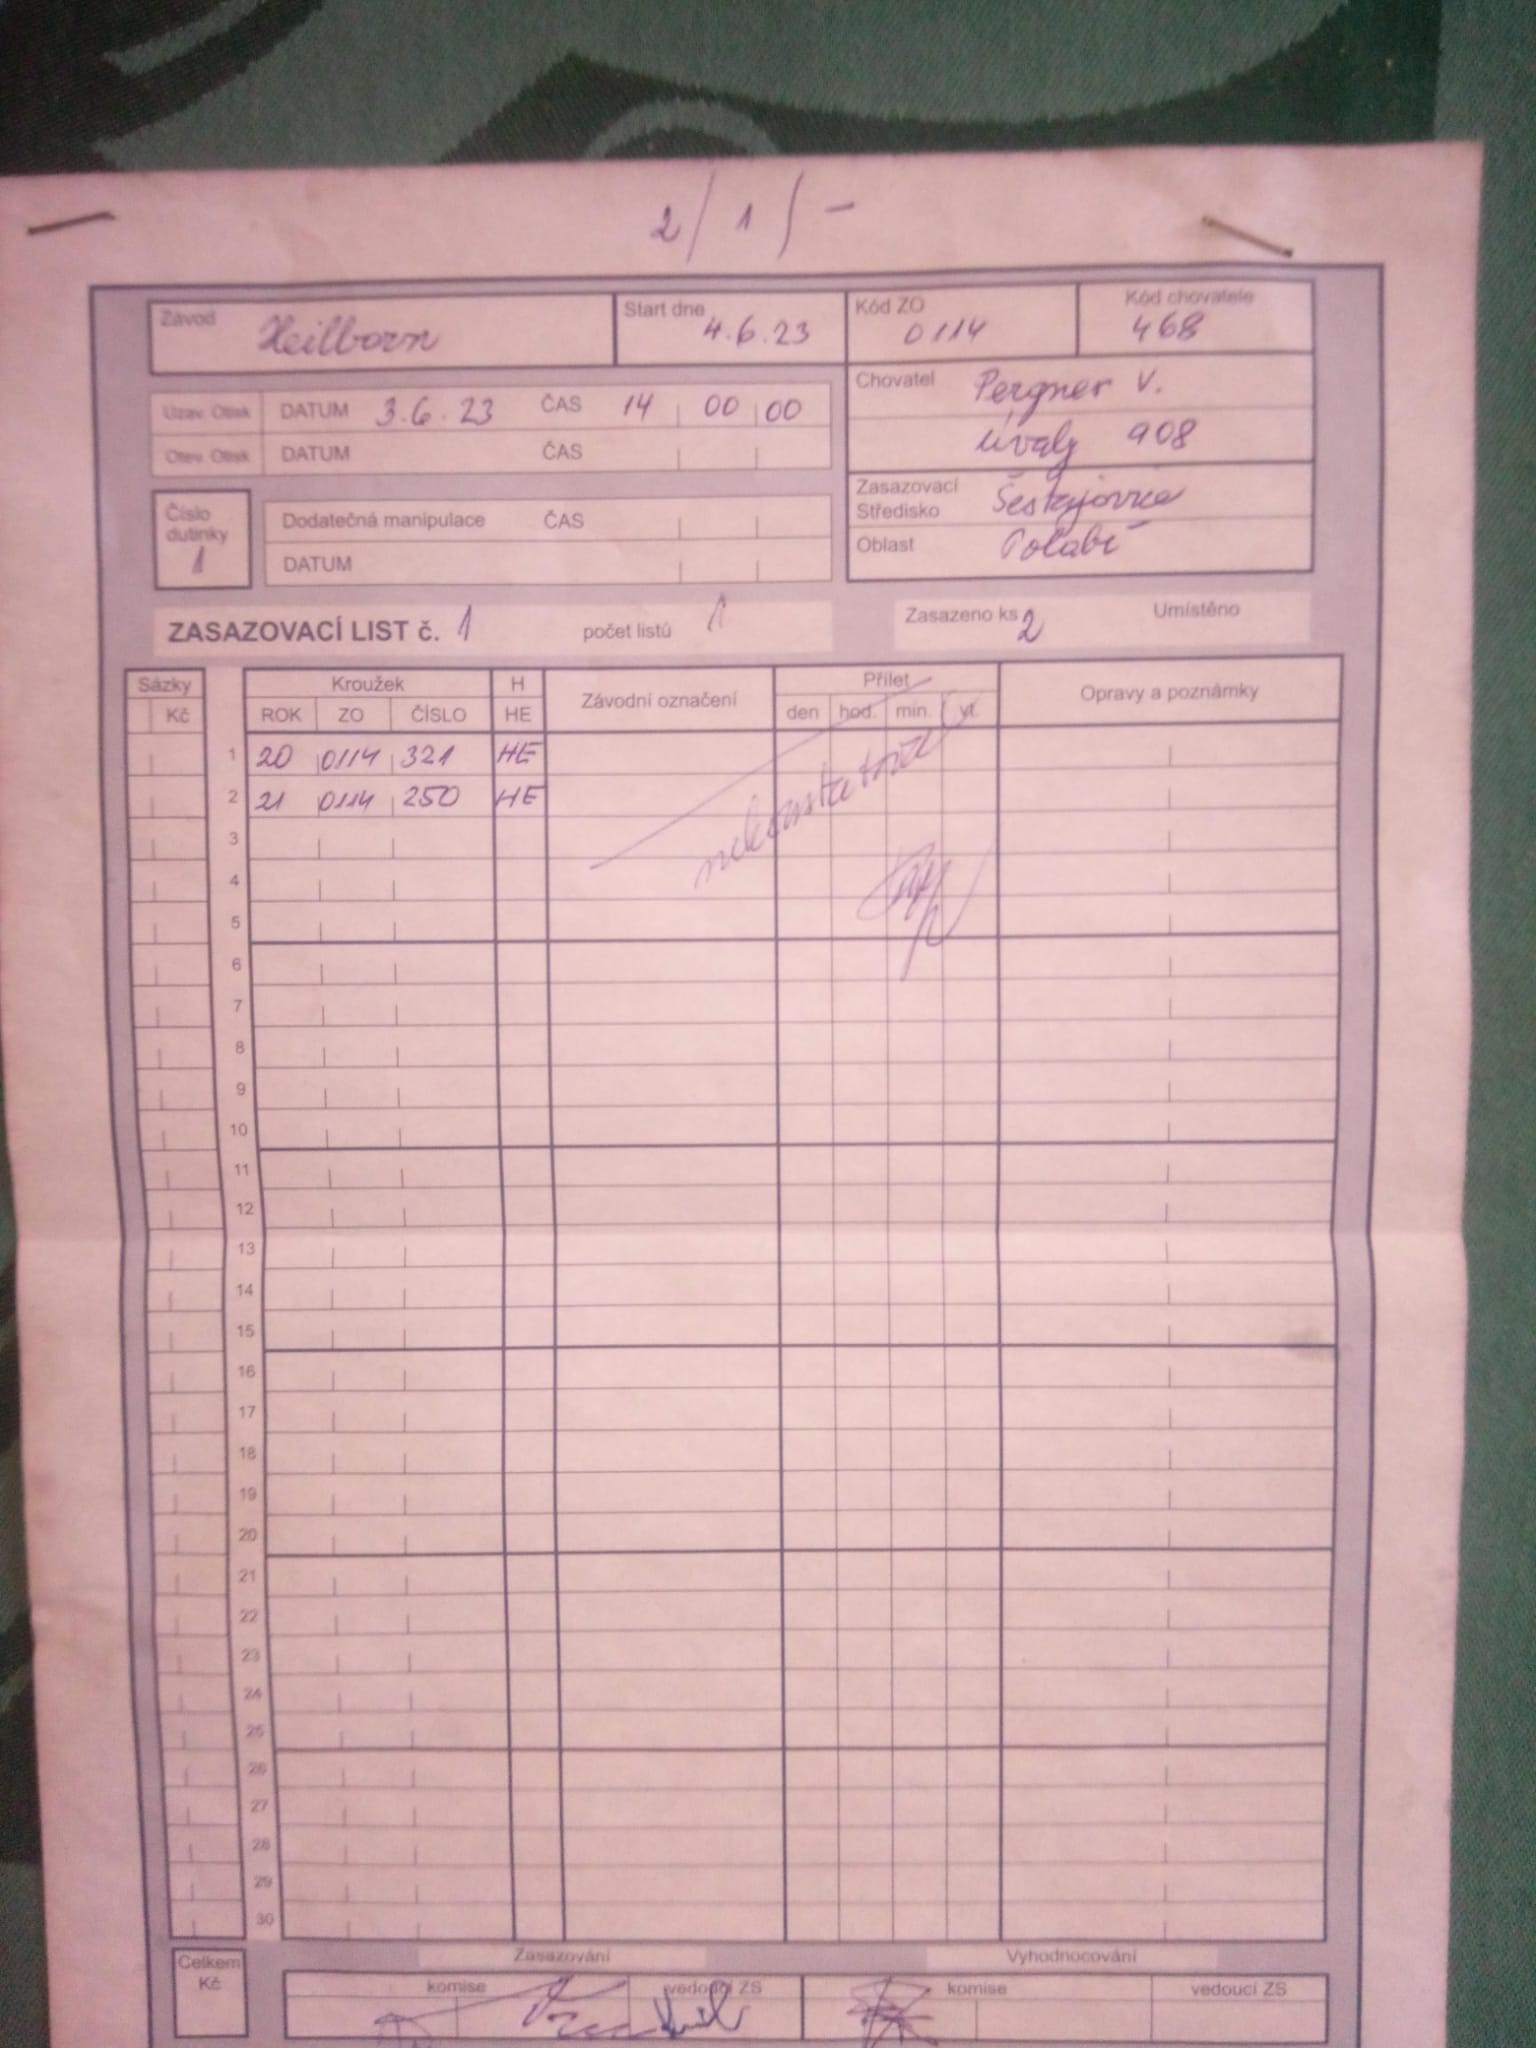 2/1/-
Závod Heilborn Start dne 4.6.23 Kód ZO 0114 Kód chovatele 468
Uzav. Otisk DATUM 3.6.23 ČAS 14 00 00
Otev. Otisk DATUM ČAS
Chovatel Pergner V.
Úvaly 908
Číslo dutinky 1
Dodatečná manipulace ČAS
DATUM
Zasazovací Středisko
Oblast Polabí
ZASAZOVACÍ LIST č. 1 počet listů 1 Zasazeno ks 2 Umístěno
Sázky Kroužek H Závodní označení Přílet Opravy a poznámky
Kč ROK ZO ČÍSLO HE den hod. min. vt.
1 20 0114 321 HE
2 21 0114 250 HE
nekonstatoval
3
4
5
6
7
8
9
10
11
12
13
14
15
16
17
18
19
20
21
22
23
24
25
26
27
28
29
30
Celkem Kč
Zasazování Vyhodnocování
komise vedoucí ZS komise vedoucí ZS